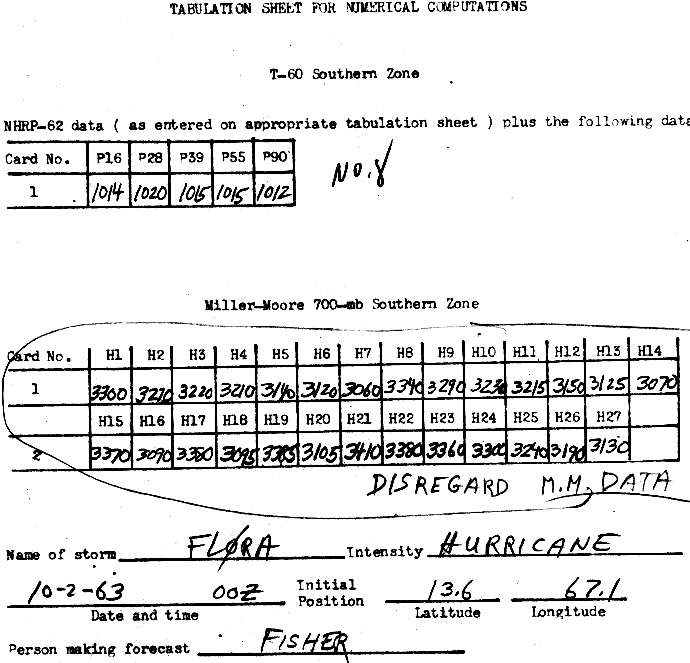 TABULATION SHEET FOR NUMERICAL COMPUTATIONS
T-60 Southern Zone
NHRP-62 data ( as entered on appropriate tabulation sheet ) plus the following data
Card No. P16 P28 P39 P55 P90
NO. 8
1 1014 1020 1015 1015 1012
Miller-Moore 700-mb Southern Zone
Card No. H1 H2 H3 H4 H5 H6 H7 H8 H9 H10 H11 H12 H13 H14
1 3300 3270 3220 3210 3140 3120 3060 3340 3290 3230 3215 3150 3125 3070
H15 H16 H17 H18 H19 H20 H21 H22 H23 H24 H25 H26 H27
2 3370 3090 3380 3095 3385 3105 3410 3380 3360 3300 3240 3190 3130
DISREGARD M.M. DATA
Name of storm FLØRA Intensity HURRICANE
10-2-63 00Z Initial Position 13.6 67.1
Date and time Latitude Longitude
Person making forecast FISHER